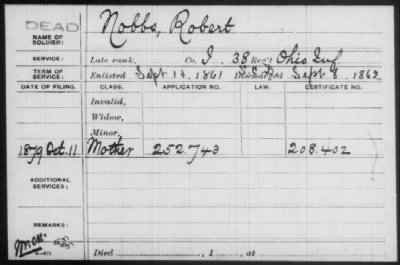 DEAD
NAME OF SOLDIER: Nobbs, Robert
SERVICE: Late rank, Co. I, 38 Reg't Ohio Inf.
TERM OF SERVICE: Enlisted Sept. 13, 1861 Discharged Sept. 8, 1862
DATE OF FILING. CLASS. APPLICATION NO. LAW. CERTIFICATE NO.
Invalid,
Widow,
Minor,
1879 Oct. 11 Mother 252.743 208.402
ADDITIONAL SERVICES:
REMARKS:
Died , 1 , at